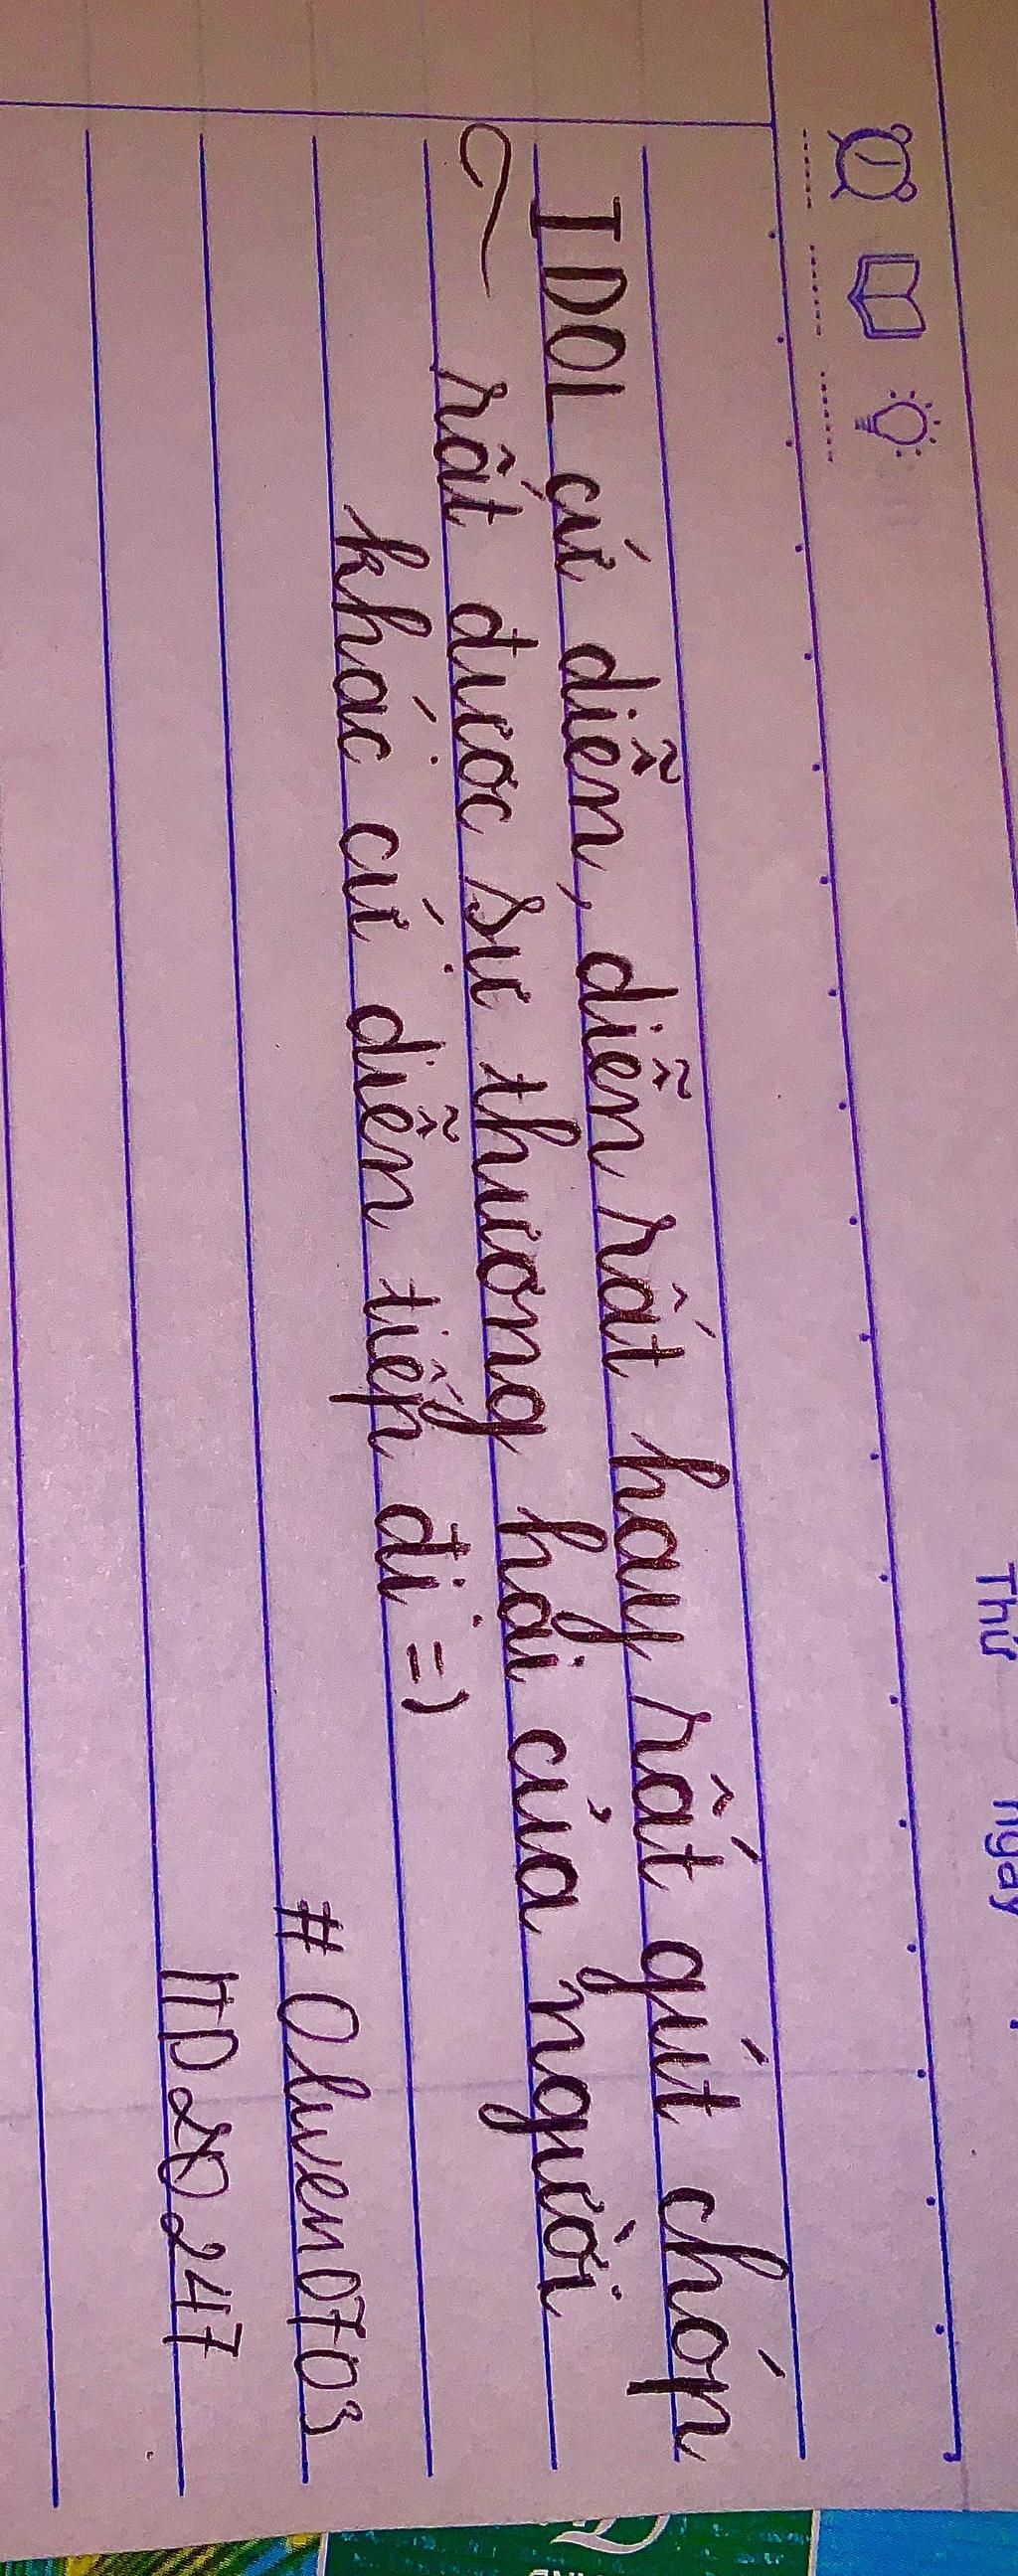 Thứ ngày
IDOL cứ diễn, diễn rất hay rất gút chóp
rất được sự thương hại của người
khác cứ diễn tiếp đi =)
# Olwen0703
ITD 20 247